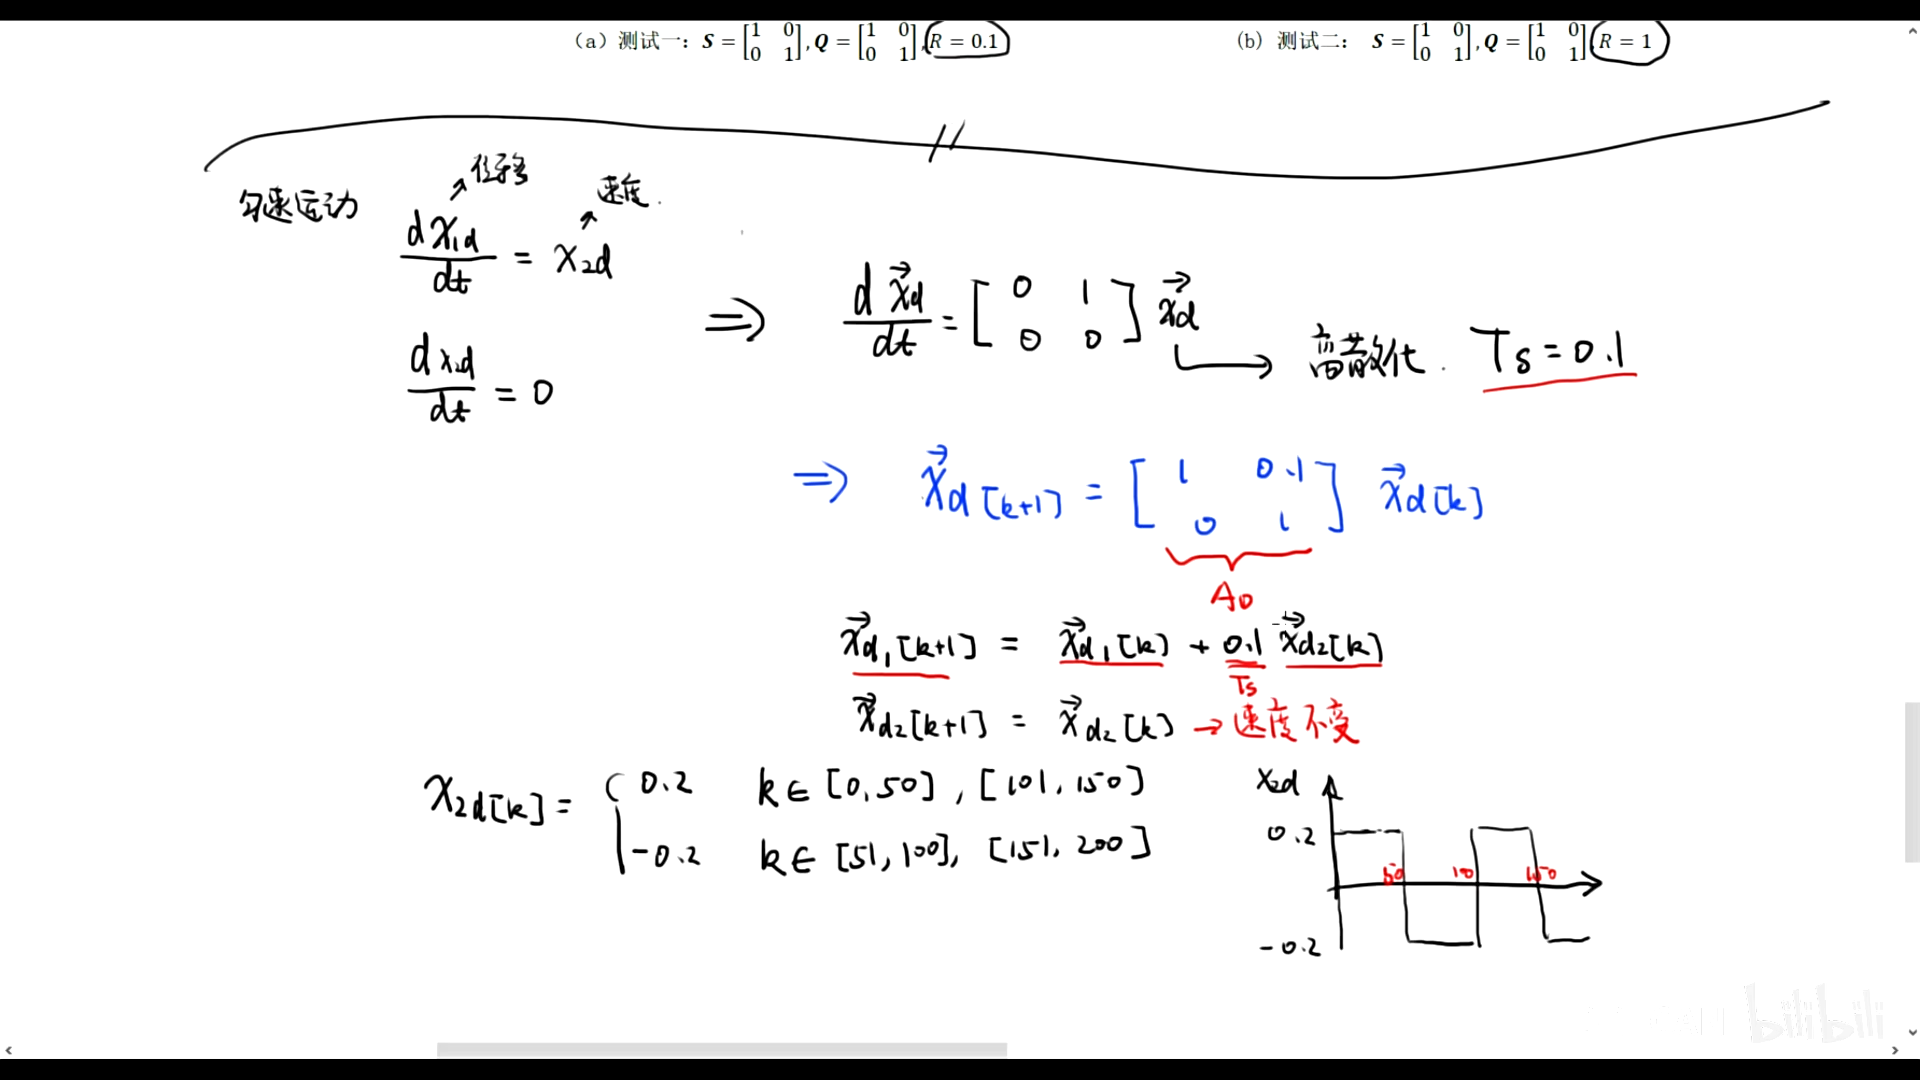 （a）测试一：S = [1 0; 0 1], Q = [1 0; 0 1], R = 0.1
(b) 测试二： S = [1 0; 0 1], Q = [1 0; 0 1], R = 1
匀速运动
位移
速度.
dx₁d/dt = x₂d
dx₂d/dt = 0
⇒ dx⃗d/dt = [0 1; 0 0] x⃗d
离散化. Ts = 0.1
⇒ x⃗d[k+1] = [1 0.1; 0 1] x⃗d[k]
AD
x⃗d₁[k+1] = x⃗d₁[k] + 0.1 x⃗d₂[k]
Ts
x⃗d₂[k+1] = x⃗d₂[k] → 速度不变
x₂d[k] = { 0.2 k∈[0,50], [101,150]
-0.2 k∈[51,100], [151,200]
x₂d
0.2
50 100 150
-0.2
bilibili